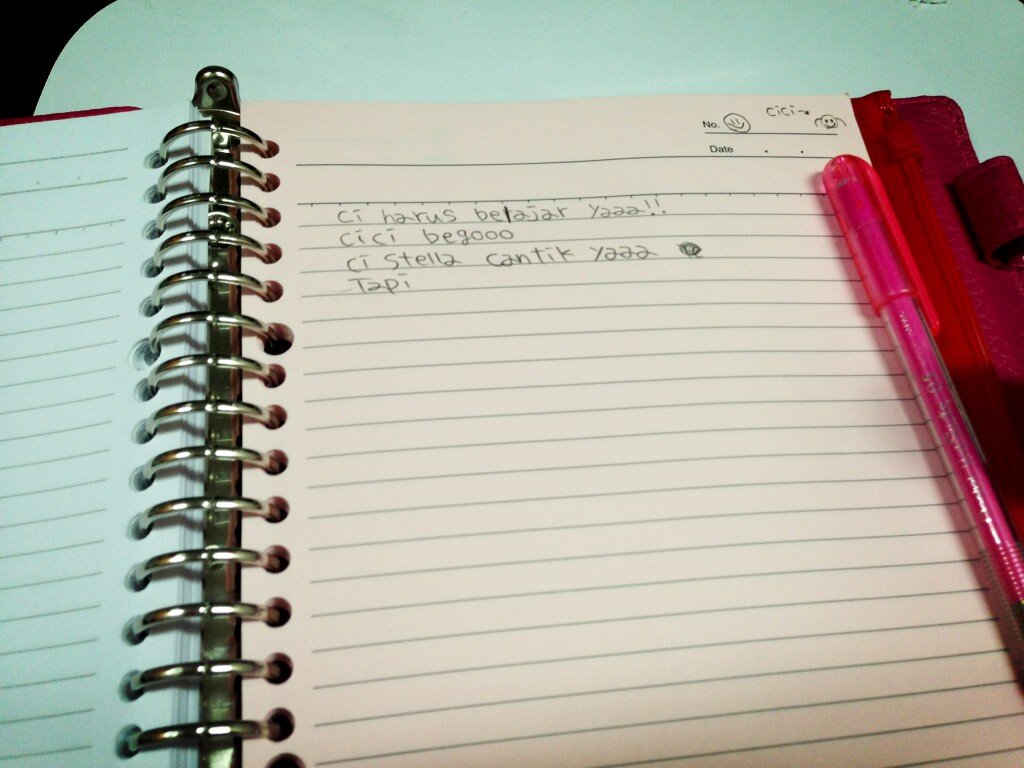 No. cici
Date . .
ci harus belajar yaaa!!
cici begooo
ci Stella cantik yaaa
Tapi